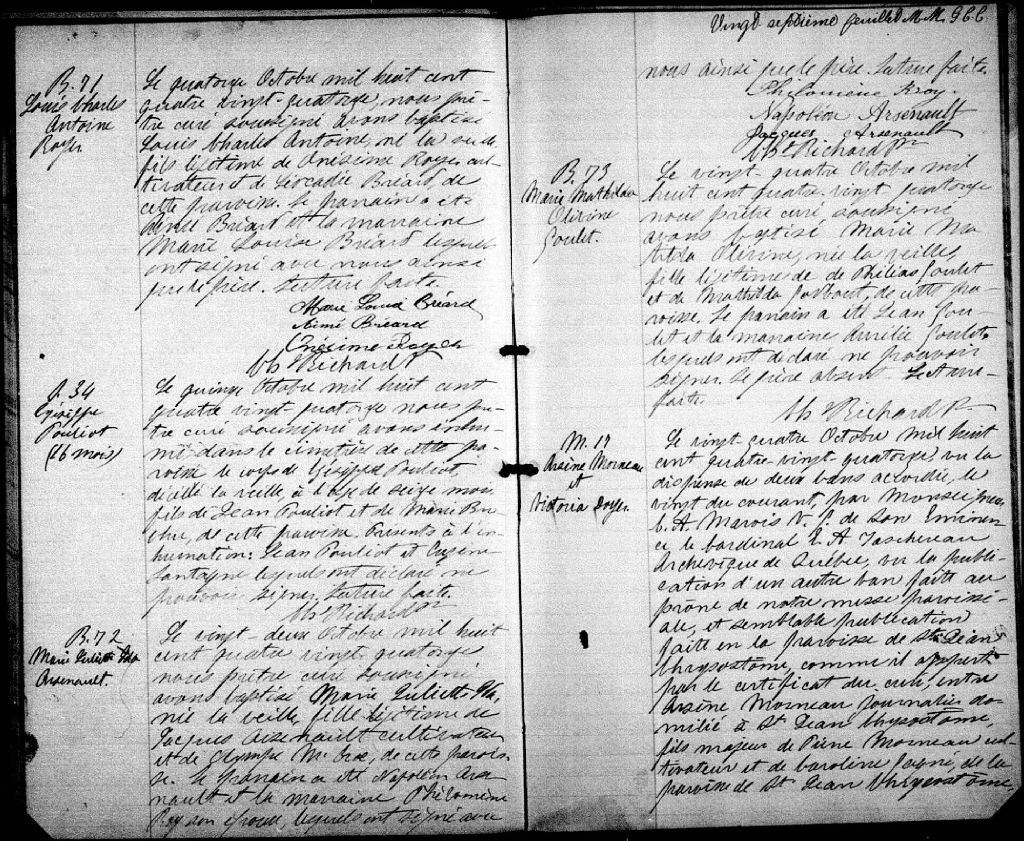 B. 71
Louis Charles
Antoine
Royer
Le quatorze Octobre mil huit cent
quatre vingt-quatorze, nous prê-
tre curé soussigné avons baptisé
Louis Charles Antoine, né la
fils légitime de Onésime Royer cul-
tivateur et de Léocadie Bréard, de
cette paroisse. Le parrain a été
Bréard et la marraine
Marie Louise Bréard lesquels
ont signé avec nous ainsi
que le père. Lecture faite.
Marie Louise Bréard
Aimé Bréard
Onésime Royer
Chs Richard Ptr
S. 34
Pouliot
(16 mois)
Le quinze Octobre mil huit cent
quatre vingt quatorze nous prê-
tre curé soussigné avons inhu-
mé dans le cimetière de cette pa-
roisse le corps de Pouliot,
décédé la veille, à l'âge de seize mois
fils de Jean Pouliot et de Marie
de cette paroisse. Présents à l'in-
humation: Jean Pouliot et Eugène
lesquels ont déclaré ne
pouvoir signer. Lecture faite.
Chs Richard Ptr
B. 72
Marie Juliette
Arsenault.
Le vingt-deux Octobre mil huit
cent quatre vingt quatorze
nous prêtre curé soussigné
avons baptisé Marie Juliette
née la veille, fille légitime de
Jacques Arsenault cultivateur
et de Olympe de cette parois-
se. Le parrain a été Napoléon Arse-
nault et la marraine Philomène
Roy son épouse, lesquels ont signé avec
Vingt septième feuillet M. M. G C C
nous ainsi que le père. Lecture faite.
Philomène Roy.
Napoléon Arsenault
Jacques Arsenault
Chs Richard Ptr
B. 73
Marie Mathilda
Olivine
Goulet.
Le vingt-quatre Octobre mil
huit cent quatre-vingt quatorze
nous prêtre curé soussigné
avons baptisé Marie Ma-
thilda Olivine, née la veille,
fille légitime de de Philias Goulet
et de Mathilda Godbout, de cette pa-
roisse. Le parrain a été Jean Gou-
let et la marraine Aurélie Goulet
lesquels ont déclaré ne pouvoir
signer. Le père absent. Lecture
faite.
Chs Richard P.
M. 17
Arsène Morneau
et
Victoria Royer.
Le vingt quatre Octobre mil huit
cent quatre-vingt quatorze, vu la
dispense de deux bans accordée, le
vingt du courant, par Monseigneur
C. A Marois V. G. de Son Eminen-
ce le Cardinal E. A Taschereau
Archevêque de Québec, vu la publi-
cation d'un autre ban faite au
prône de notre messe paroissi-
ale, et semblable publication
faite en la paroisse de St Jean
Chrysostôme, comme il appert
par le certificat du curé, entre
Arsène Morneau journalier do-
milié à St Jean Chrysostôme,
fils majeur de Pierre Morneau cul-
tivateur et de Caroline de la
paroisse de St Jean Chrysostôme,